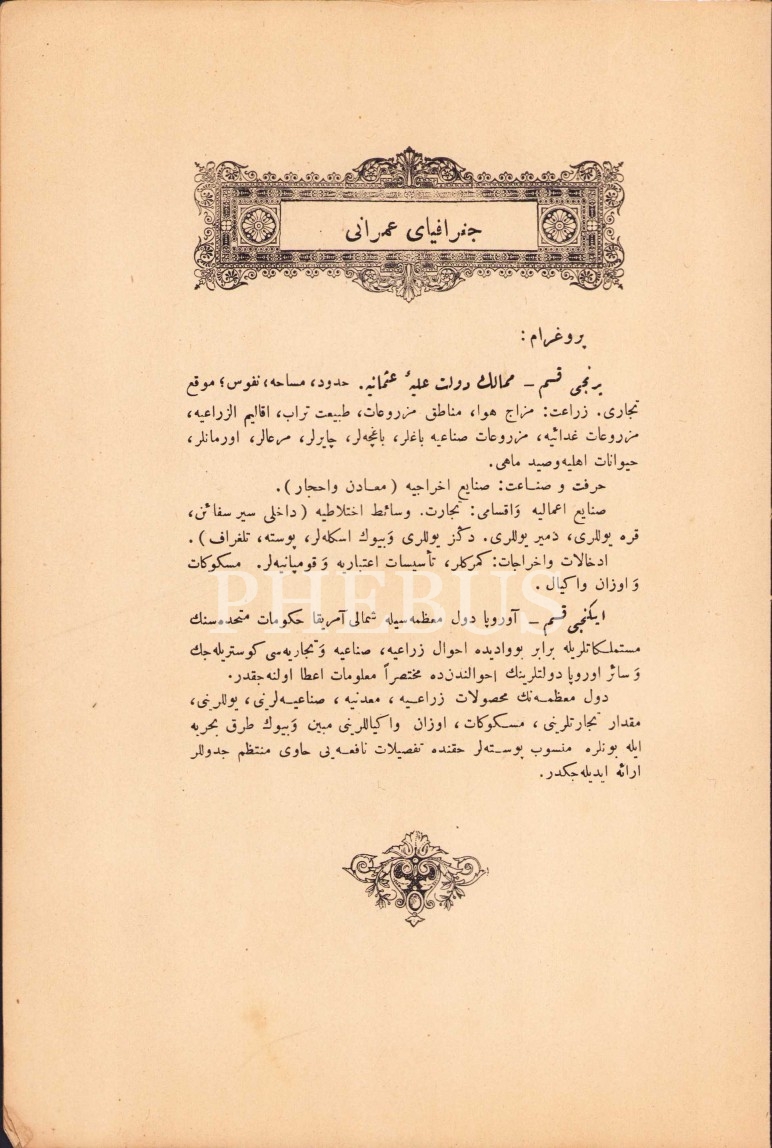 جغرافیای عمرانی
پروغرام :
برنجی قسم – ممالك دولت علیهٔ عثمانیه. حدود، مساحه، نفوس؛ موقع
تجاری. زراعت: مزاج هوا، مناطق مزروعات، طبیعت تراب، اقالیم الزراعیه،
مزروعات غدائیه، مزروعات صناعیه باغلر، باغچه‌لر، چایرلر، مرعالر، اورمانلر،
حیوانات اهلیه وصید ماهی.
حرفت و صناعت: صنایع اخراجیه (معادن واحجار).
صنایع اعمالیه واقسامی: تجارت. وسائط اختلاطیه (داخلی سیر سفائن،
قره یوللری، دمیر یوللری. دکز یوللری وبیوك اسکله‌لر، پوسته، تلغراف).
ادخالات واخراجات: کمرکلر، تأسیسات اعتباریه و قومپانیه‌لر. مسکوکات
واوزان واکیال.
PHEBUS
ایکنجی قسم – آوروپا دول معظمه‌سیله شمالی آمریقا حکومات متحده‌سنك
مستملکاتلریله برابر بووادیده احوال زراعیه، صناعیه و تجاریه‌سی کوستریله‌جك
وسائر اوروپا دولتلرینك احوالندن‌ده مختصراً معلومات اعطا اولنه‌جقدر.
دول معظمه‌نك محصولات زراعیه، معدنیه، صناعیه‌لرنی، یوللرینی،
مقدار تجارتلرینی، مسکوکات، اوزان واکیاللرینی مبین وبیوك طرق بحریه
ایله بونلره منسوب پوسته‌لر حقنده تفصیلات نافعه‌یی حاوی منتظم جدوللر
ارائه ایدیله‌جکدر.